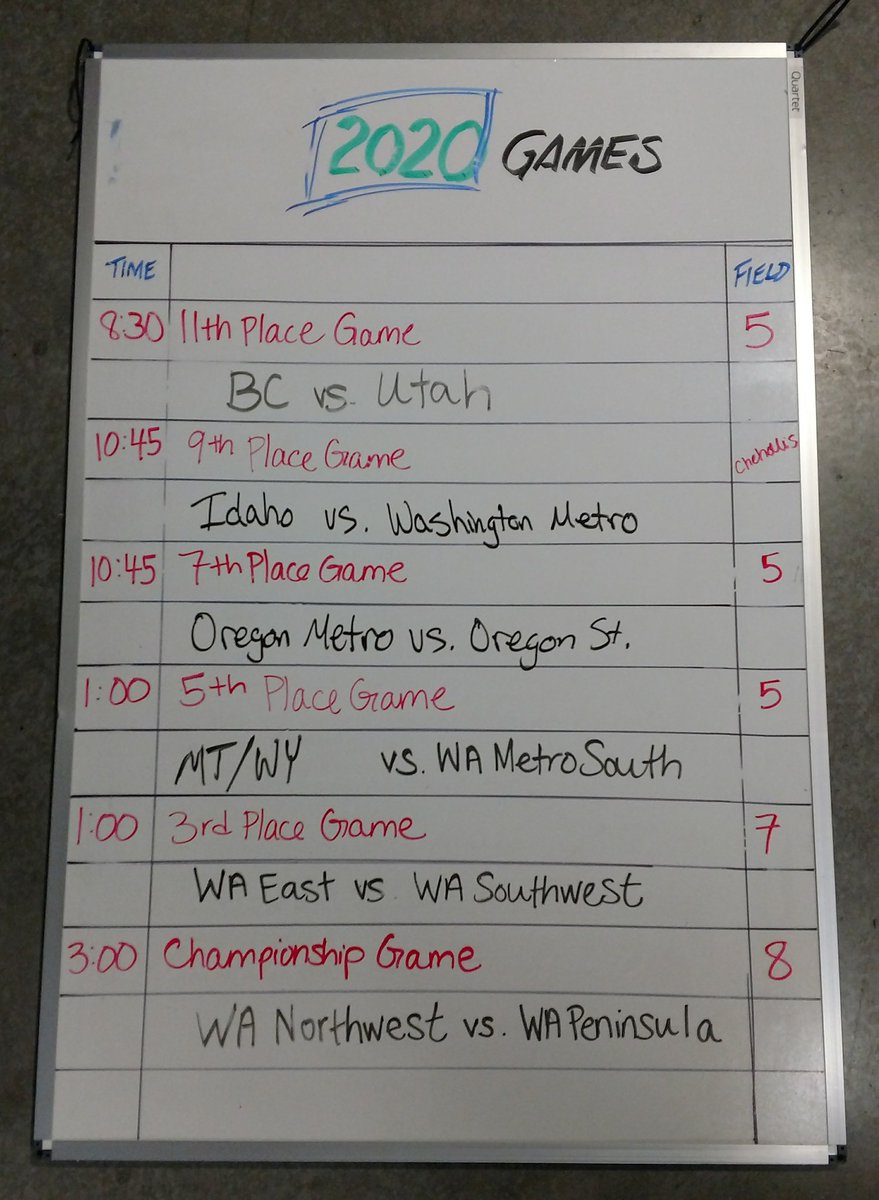 Quartet
2020 GAMES
TIME FIELD
8:30 11th Place Game 5
BC vs. Utah
10:45 9th Place Game Chehalis
Idaho vs. Washington Metro
10:45 7th Place Game 5
Oregon Metro vs. Oregon St.
1:00 5th Place Game 5
MT/WY vs. WA Metro South
1:00 3rd Place Game 7
WA East vs WA Southwest
3:00 Championship Game 8
WA Northwest vs. WA Peninsula